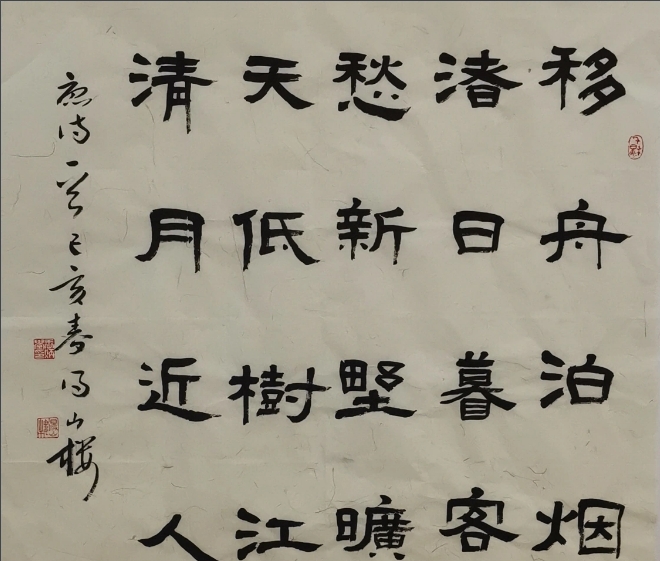 移舟泊烟
渚日暮客
愁新野曠
天低樹江
清月近人
唐诗一首己亥春山楼